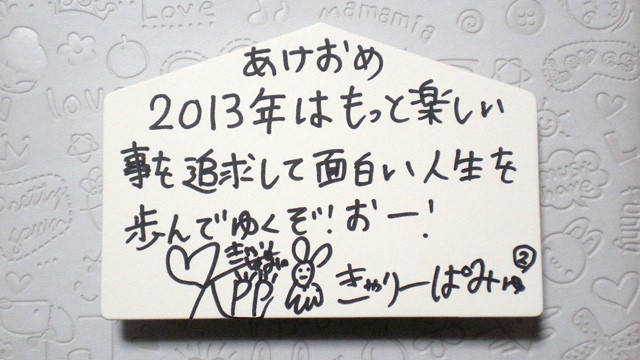 あけおめ
2013年はもっと楽しい
事を追求して面白い人生を
歩んでゆくぞ!おー!
きゃりーぱみゅ②
Mamamia
love
Loves
music
love